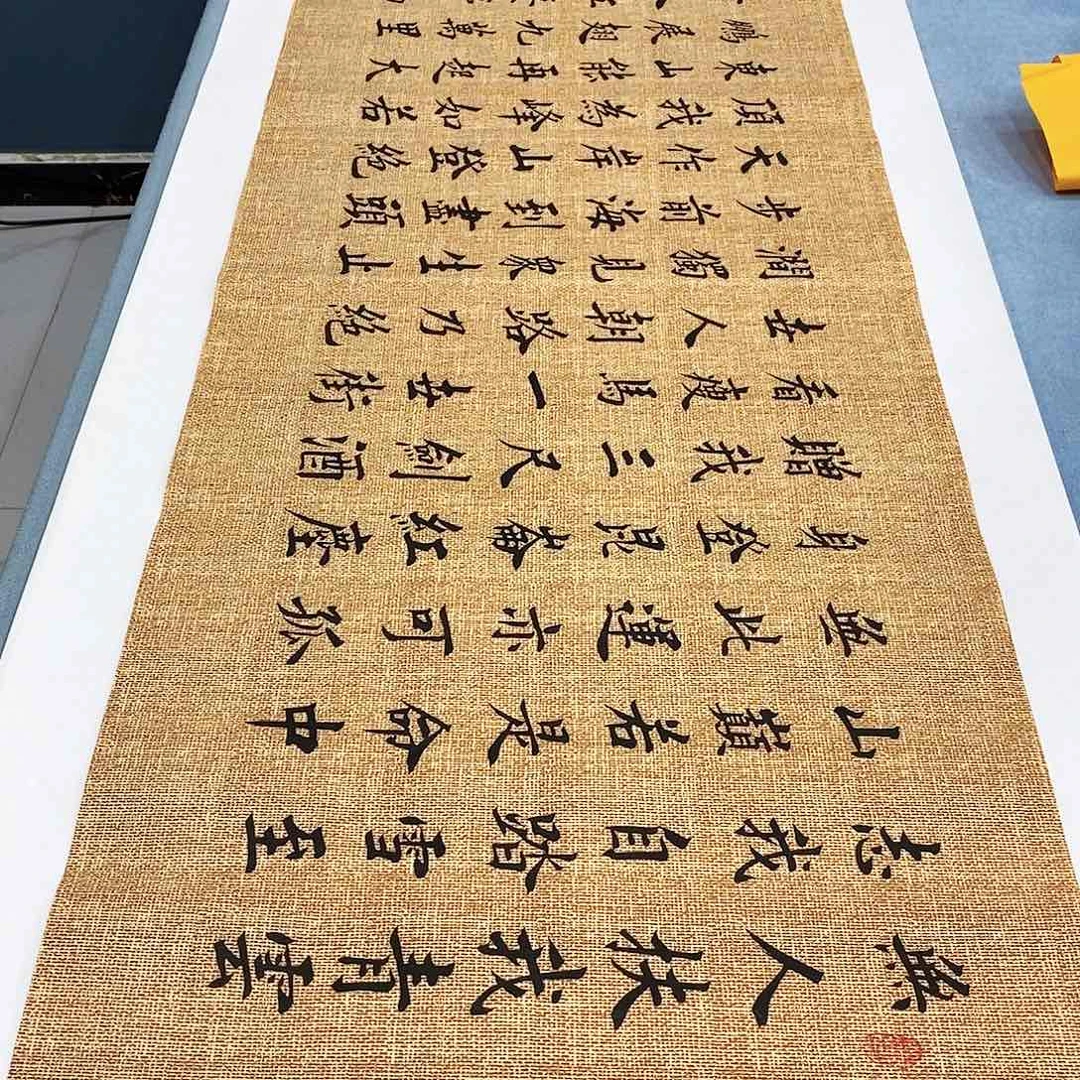 無人扶我青雲
志我自踏雪至
山巔若是命中
無此運亦可孤
身登昆崙紅塵
贈我三尺劍酒
肴瘦馬一世街
世人朝路乃絕
澗獨見衆生止
步前海到盡頭
天作岸山登絕
頂我為峰如若
東山能再起大
鵬展翅九萬里